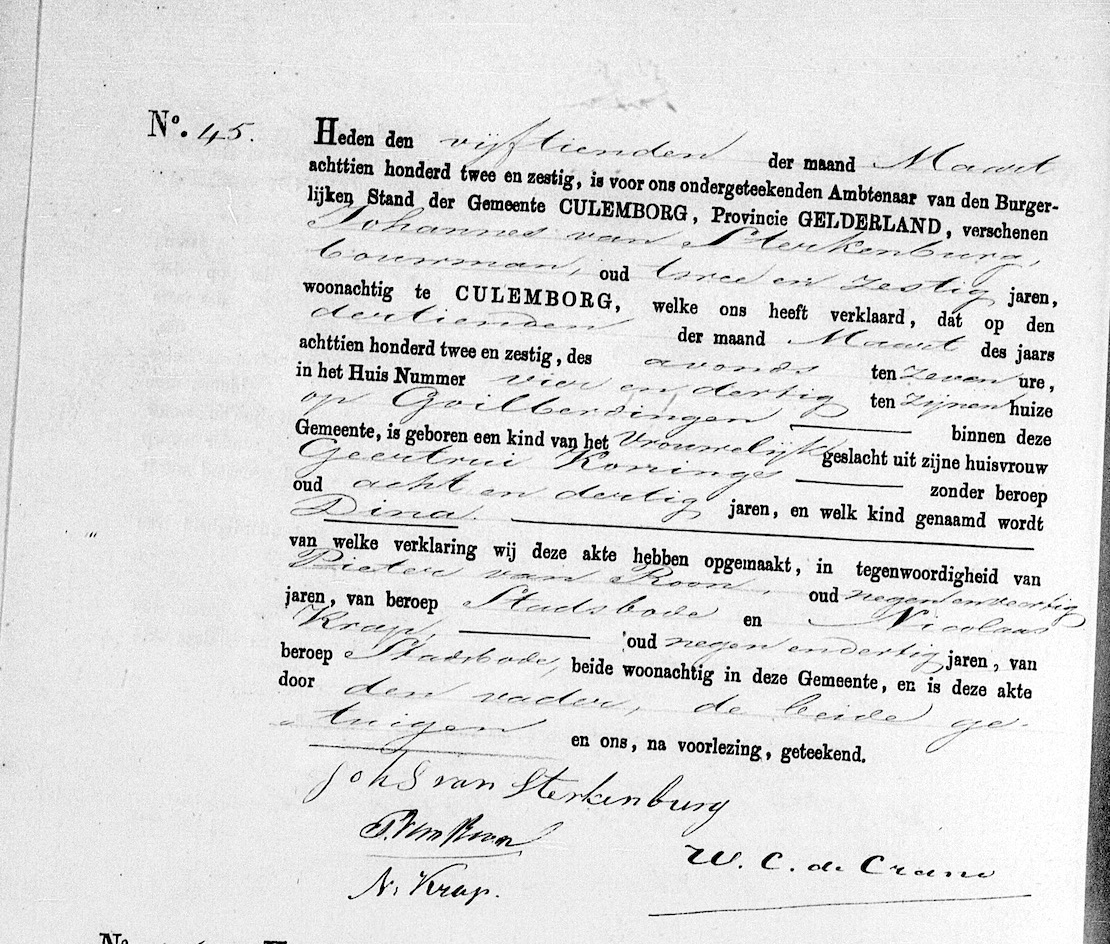 No. 45.
Heden den vijftienden der maand Maart
achttien honderd twee en zestig, is voor ons ondergeteekenden Ambtenaar van den Burger-
lijken Stand der Gemeente CULEMBORG, Provincie GELDERLAND, verschenen
Johannes van Sterkenburg,
bouwman, oud twee en zestig jaren,
woonachtig te CULEMBORG, welke ons heeft verklaard, dat op den
dertienden der maand Maart des jaars
achttien honderd twee en zestig, des avonds ten zeven ure,
in het Huis Nummer vier en dertig ten zijnen huize
op Goilberdingen binnen deze
Gemeente, is geboren een kind van het Vrouwelijk geslacht uit zijne huisvrouw
Geertrui Konings zonder beroep
oud acht en dertig jaren, en welk kind genaamd wordt
Dina.
van welke verklaring wij deze akte hebben opgemaakt, in tegenwoordigheid van
Pieter van Roon, oud negen en veertig
jaren, van beroep Stadsbode en Nicolaas
Krap, oud negen en dertig jaren, van
beroep Stadsbode, beide woonachtig in deze Gemeente, en is deze akte
door den vader, de beide ge-
tuigen en ons, na voorlezing, geteekend.
Johs van Sterkenburg
P. van Roon
W. C. de Crane
N. Krap.
No